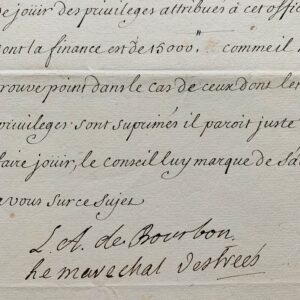 de jouir des privileges attribués à cet offi
dont la finance est de 15000.# comme il
trouve point dans le cas de ceux dont les
privileges sont suprimés il paroit juste
faire jouir, le conseil luy marque de s'a
a vous sur ce sujet
L. A. de Bourbon
Le marechal destrees